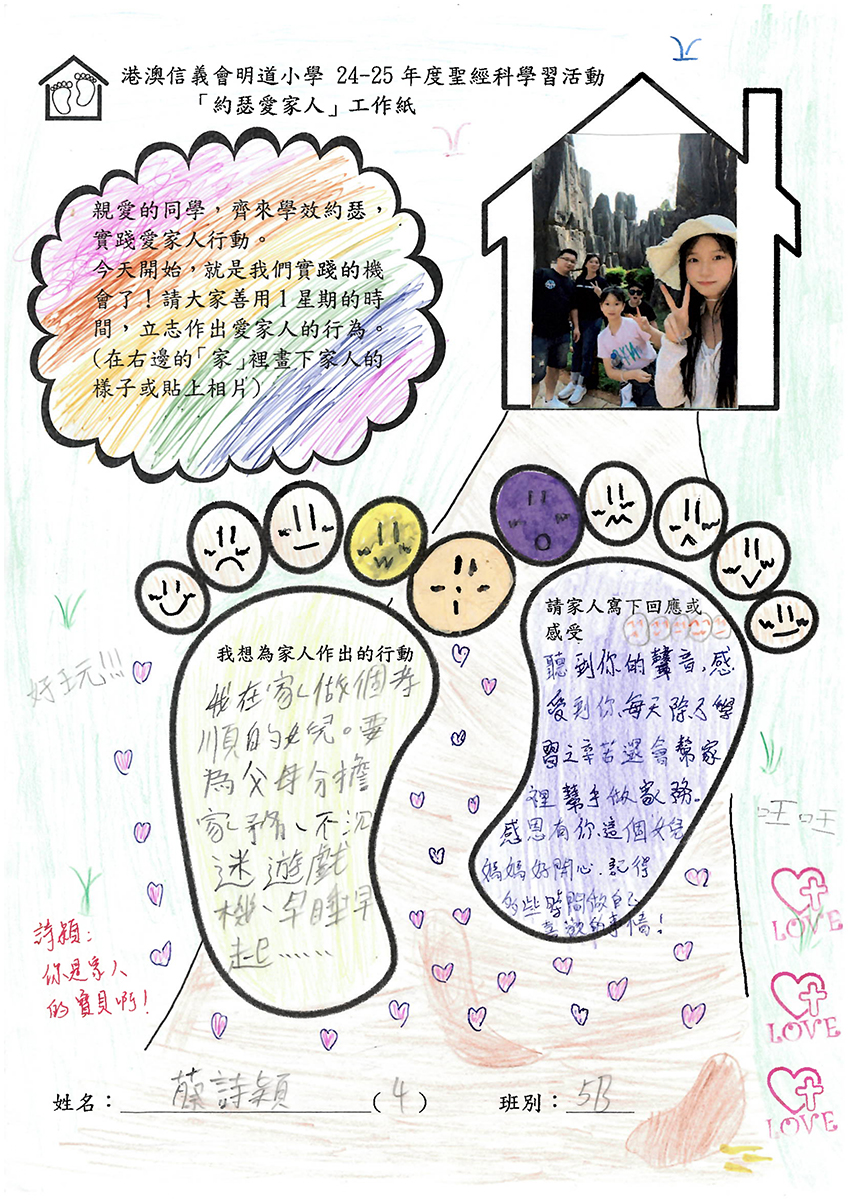 港澳信義會明道小學 24-25 年度聖經科學習活動
「約瑟愛家人」工作紙
親愛的同學，齊來學效約瑟，
實踐愛家人行動。
今天開始，就是我們實踐的機
會了！請大家善用1星期的時
間，立志作出愛家人的行為。
(在右邊的「家」裡畫下家人的
樣子或貼上相片)
我想為家人作出的行動
我在家做個孝
順的女兒。要
為父母分擔
家務、不沉
迷遊戲
機、早睡早
起……
請家人寫下回應或
感受
聽到你的聲音,感
受到你每天除了學
習之辛苦還會幫家
裡幫手做家務。
感恩有你這個女兒
媽媽好開心.記得
多些時間做自己
喜歡的事情!
好玩!!!
汪汪
詩穎:
你是家人
的寶貝啊!
LOVE
LOVE
LOVE
姓名：蔡詩穎(4)
班別：5B